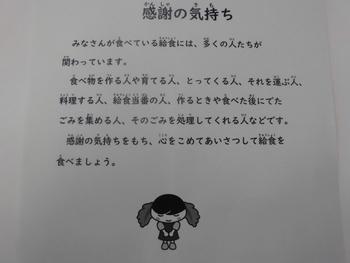 感謝の気持ち
みなさんが食べている給食には、多くの人たちが
関わっています。
食べ物を作る人や育てる人、とってくる人、それを運ぶ人、
料理する人、給食当番の人、作るときや食べた後にでた
ごみを集める人、そのごみを処理してくれる人などです。
感謝の気持ちをもち、心をこめてあいさつして給食を
食べましょう。